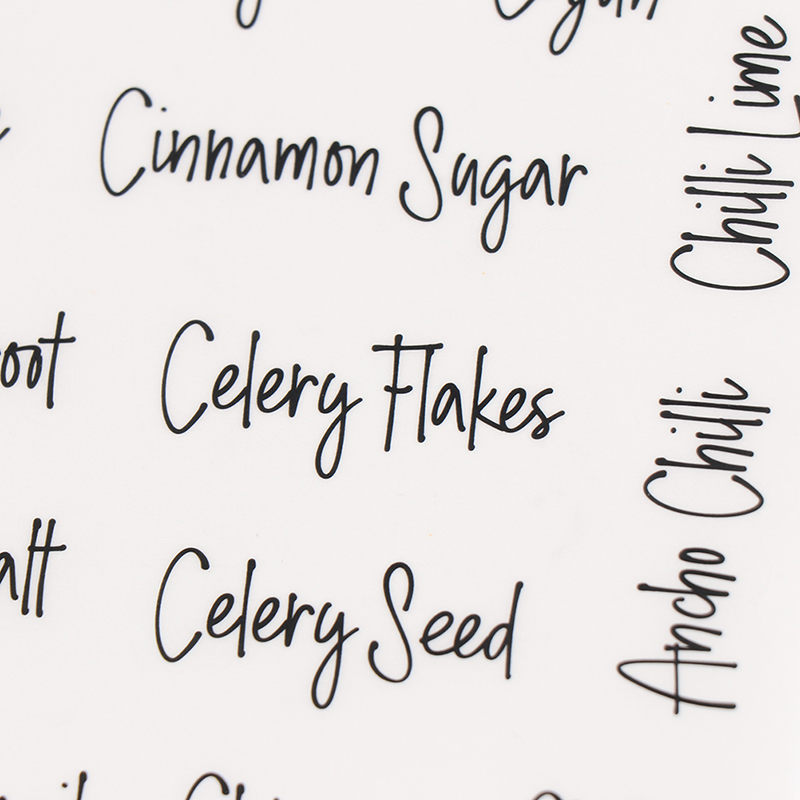 Cinnamon Sugar
Celery Flakes
Celery Seed
Chilli Lime
Ancho Chilli